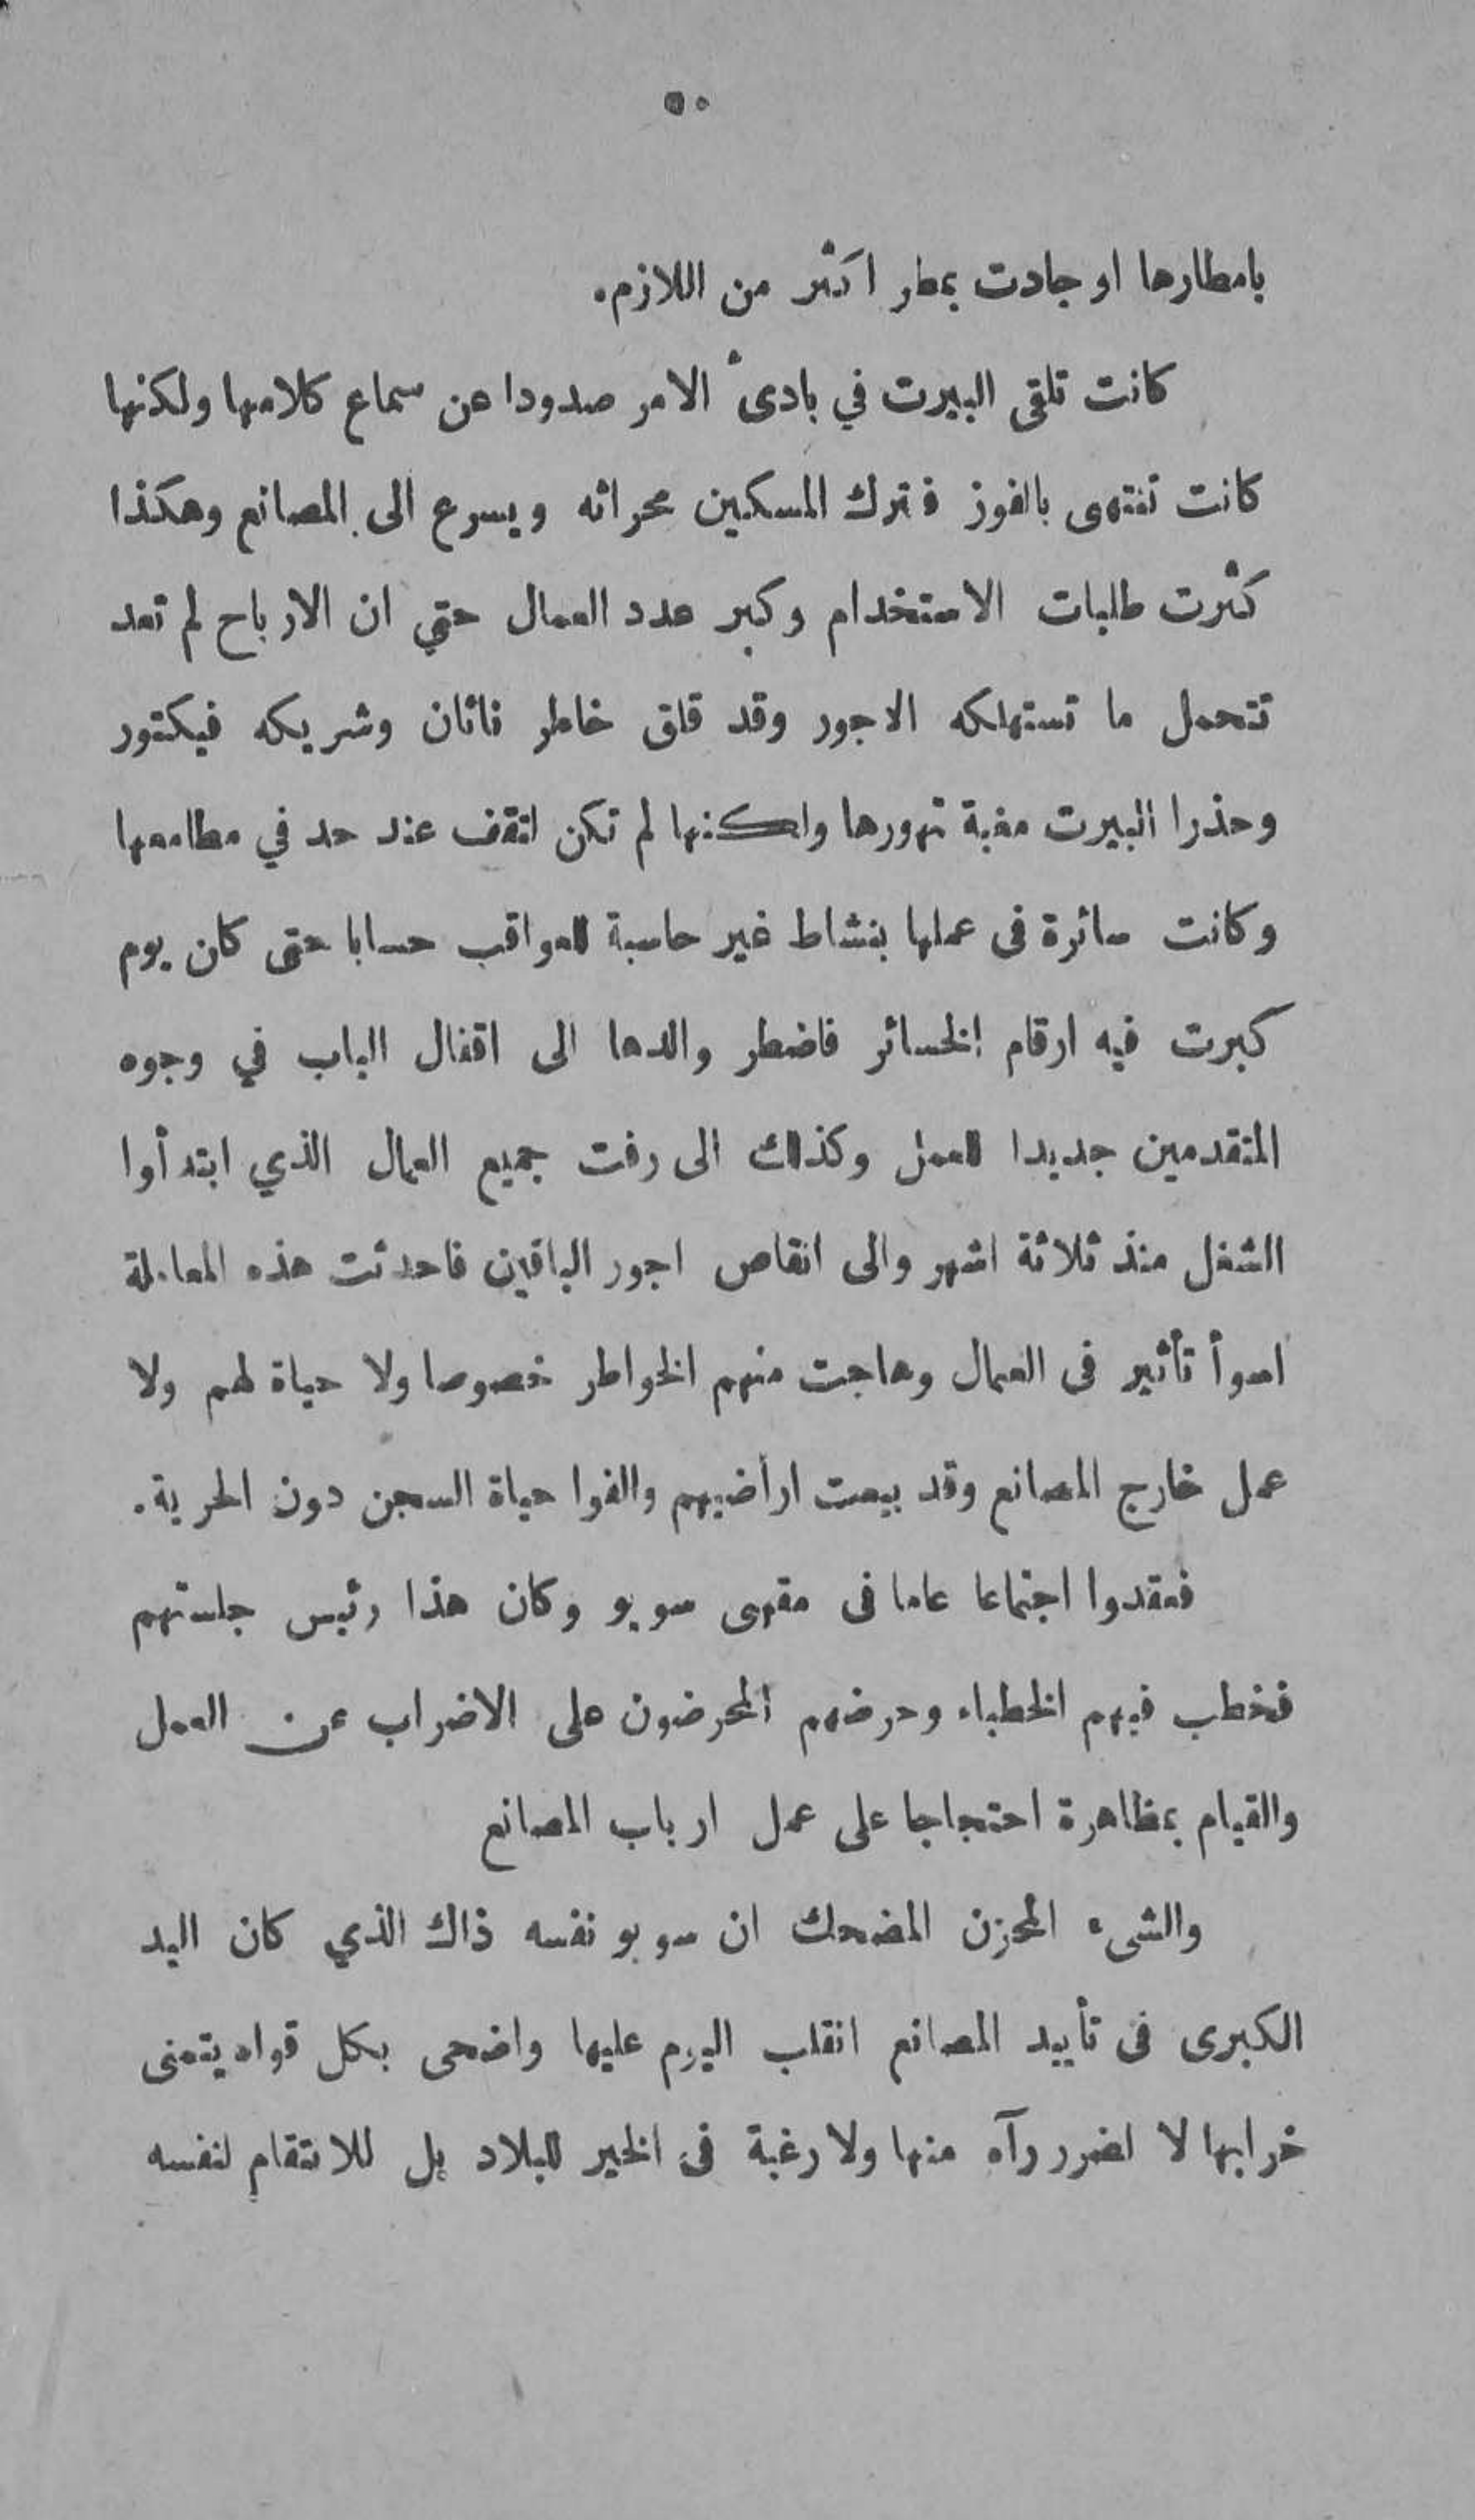 ٥٠
بامطارها او جادت بمطر اكثر من اللازم.
كانت تلقى البيرت في بادئ الامر صدودا عن سماع كلامها ولكنها
كانت تنتهى بالفوز فترك المسكين محراثه ويسرع الى المصانع وهكذا
كثرت طلبات الاستخدام وكبر عدد العمال حتي ان الارباح لم تعد
تتحمل ما تستهلكه الاجور وقد قلق خاطر ناثان وشريكه فيكتور
وحذرا البيرت مغبة تهورها ولكنها لم تكن لتقف عند حد في مطامعها
وكانت سائرة فى عملها بنشاط غير حاسبة للعواقب حسابا حتى كان يوم
كبرت فيه ارقام الخسائر فاضطر والدها الى اقفال الباب في وجوه
المتقدمين جديدا للعمل وكذلك الى رفت جميع العمال الذي ابتدأوا
الشغل منذ ثلاثة اشهر والى انقاص اجور الباقين فاحدثت هذه المعاملة
اسوأ تأثير فى العمال وهاجت منهم الخواطر خصوصا ولا حياة لهم ولا
عمل خارج المصانع وقد بيعت اراضيهم والفوا حياة السجن دون الحرية.
فعقدوا اجتماعا عاما فى مقهى سوبو وكان هذا رئيس جلستهم
فخطب فيهم الخطباء وحرضهم المحرضون على الاضراب عن العمل
والقيام بمظاهرة احتجاجا على عمل ارباب المصانع
والشىء المحزن المضحك ان سوبو نفسه ذاك الذي كان اليد
الكبرى فى تأييد المصانع انقلب اليوم عليها واضحى بكل قواه يتمنى
خرابها لا لضرر رآه منها ولا رغبة فى الخير للبلاد بل للانتقام لنفسه